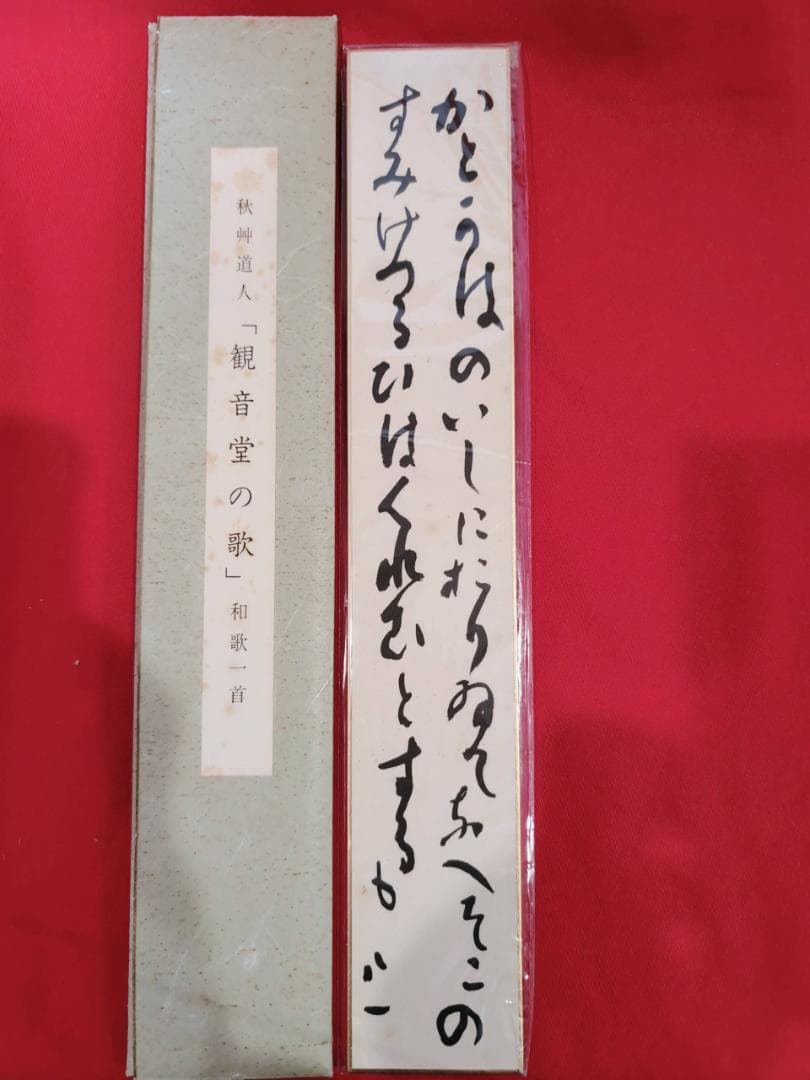 かとかはのいしにおりゐてなへそこの
すみけつるひはくれむとするも 八一
秋艸道人「観音堂の歌」和歌一首